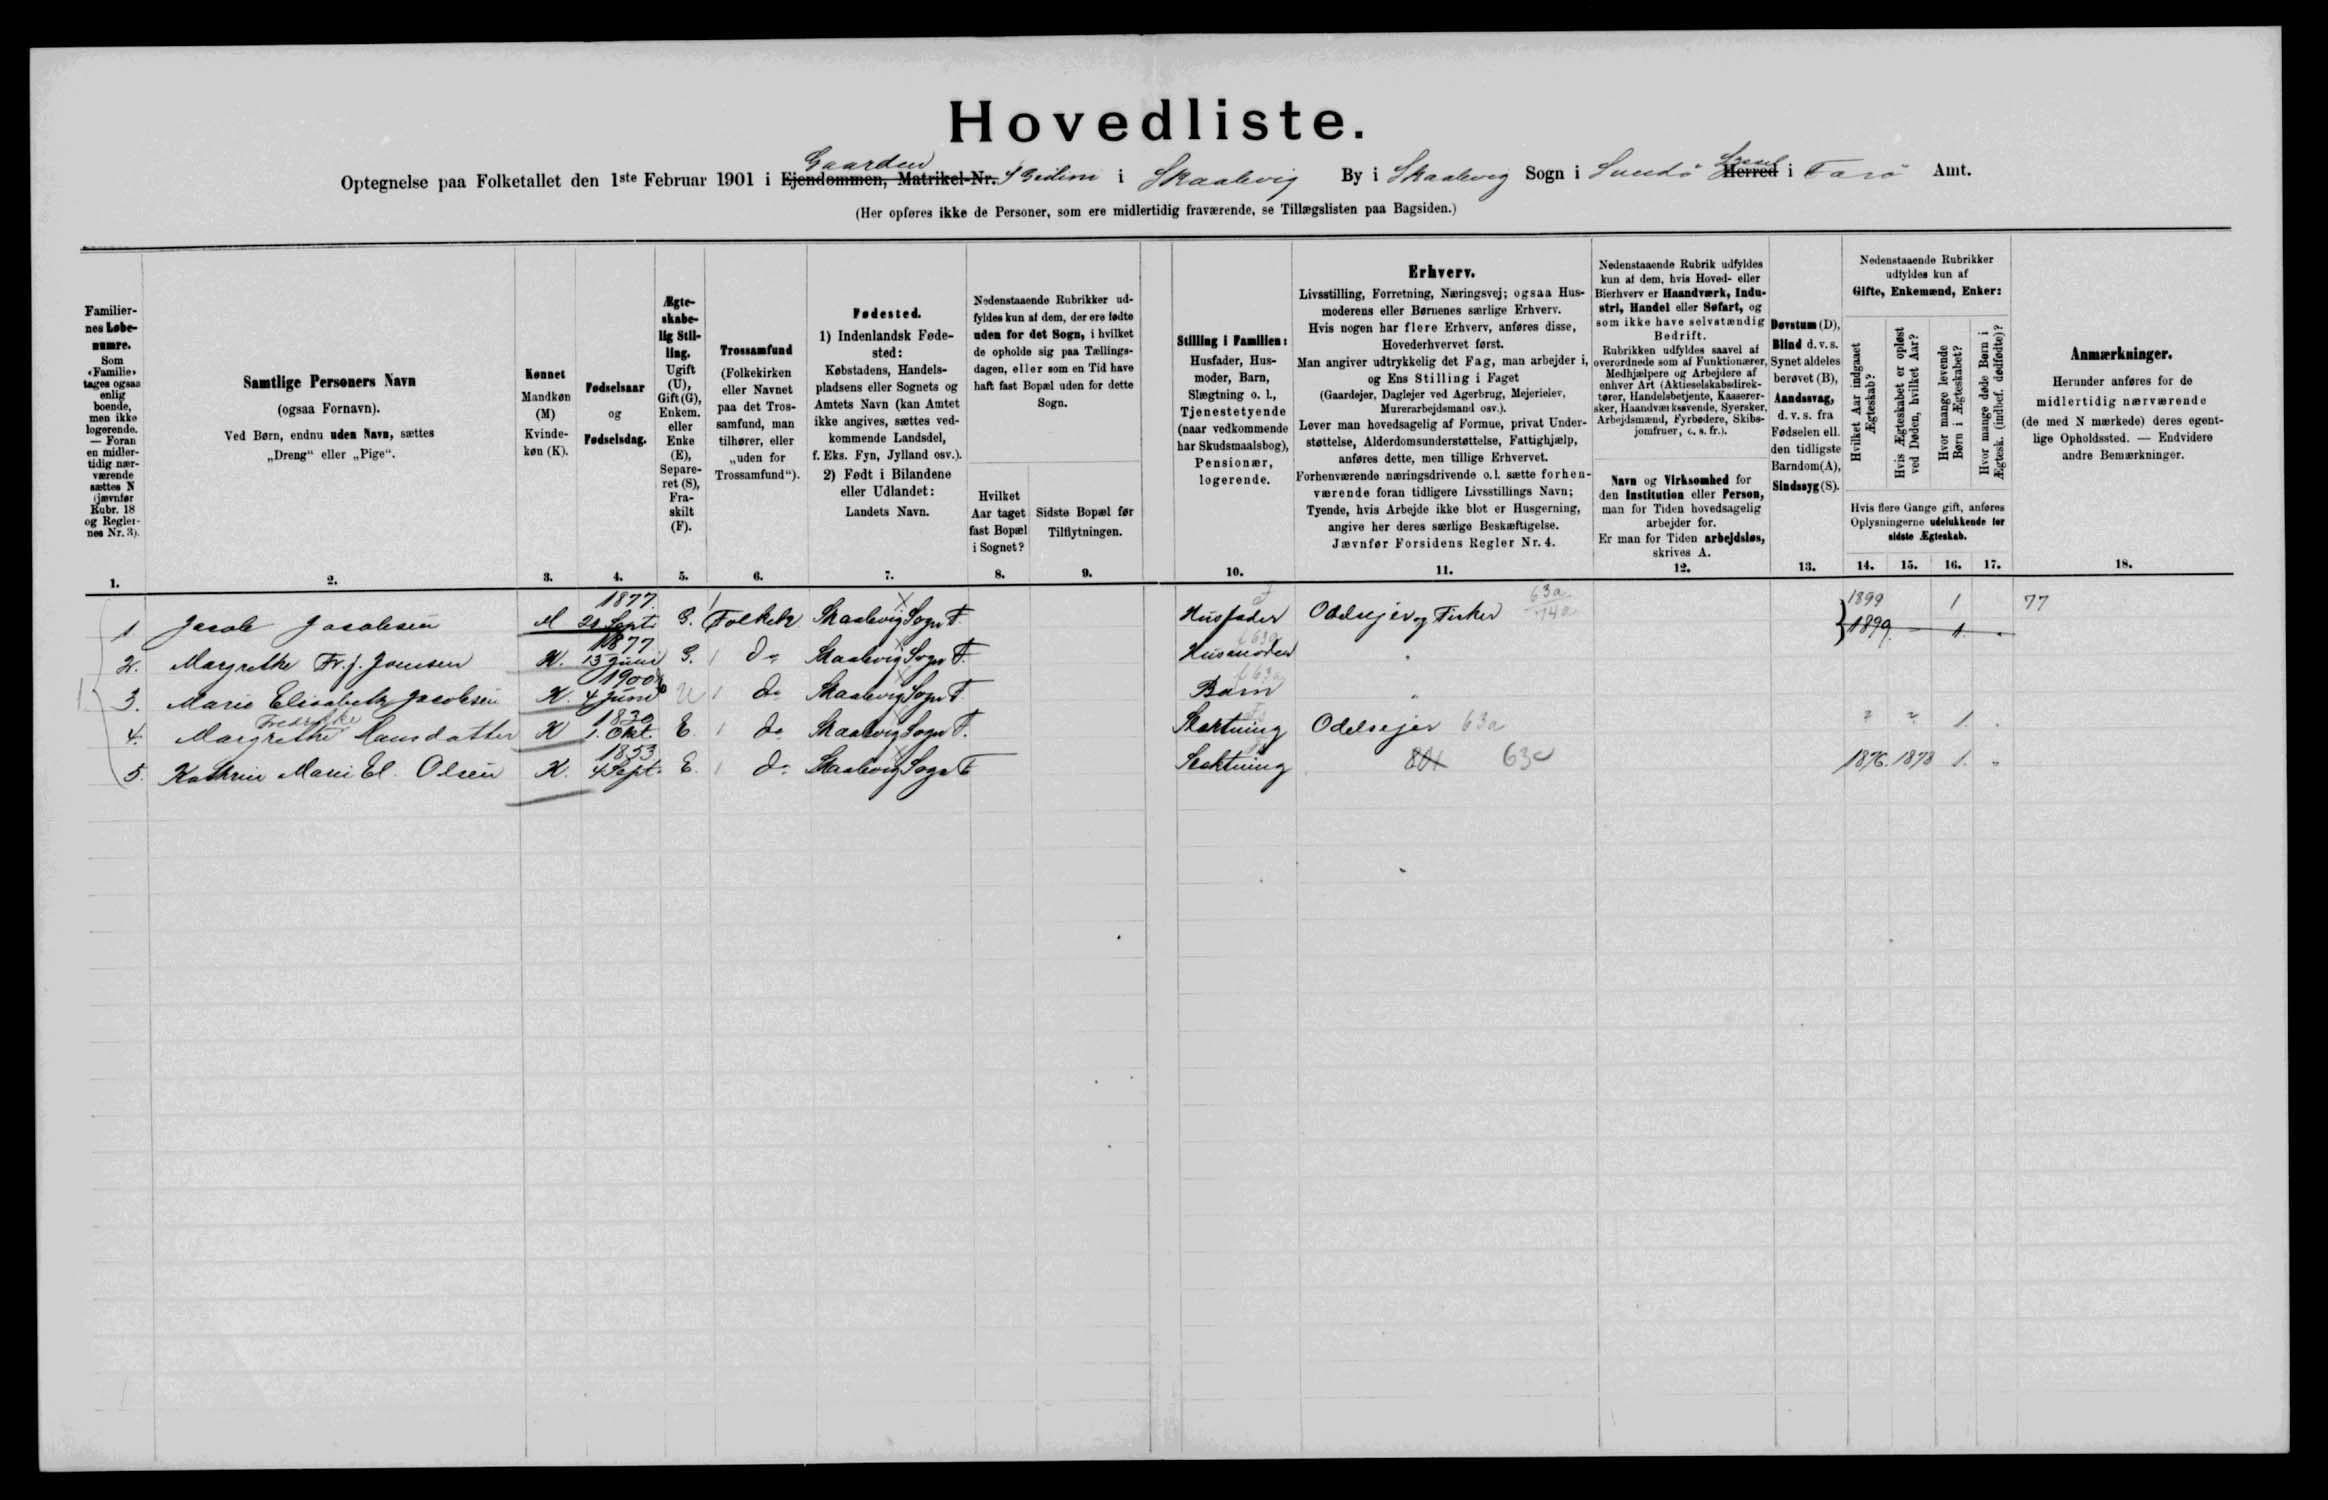 Hovedliste.
Optegnelse paa Folketallet den 1ste Februar 1901 i Ejendommen, Matrikel-Nr. Gaarden i Skaalevig By i Skaalevig Sogn i Sandö Herred Syssel i Farö Amt.
(Her opføres ikke de Personer, som ere midlertidig fraværende, se Tillægslisten paa Bagsiden.)
Familiernes Løbenumre.
Som «Familie» tages ogsaa enlig boende, men ikke logerende. — Foran en midlertidig nærværende sættes N (jævnfør Rubr. 18 og Reglernes Nr. 3).
Samtlige Personers Navn
(ogsaa Fornavn).
Ved Børn, endnu uden Navn, sættes
„Dreng“ eller „Pige“.
Kønnet
Mandkøn (M)
Kvindekøn (K).
Fødselsaar
og
Fødselsdag.
Ægteskabelig Stilling.
Ugift (U), Gift (G), Enkem. eller Enke (E), Separeret (S), Fraskilt (F).
Trossamfund
(Folkekirken eller Navnet paa det Trossamfund, man tilhører, eller „uden for Trossamfund“).
Fødested.
1) Indenlandsk Fødested:
Købstadens, Handelspladsens eller Sognets og Amtets Navn (kan Amtet ikke angives, sættes vedkommende Landsdel, f. Eks. Fyn, Jylland osv.).
2) Født i Bilandene eller Udlandet:
Landets Navn.
Nedenstaaende Rubrikker udfyldes kun af dem, der ere fødte uden for det Sogn, i hvilket de opholde sig paa Tællingsdagen, eller som en Tid have haft fast Bopæl uden for dette Sogn.
Hvilket Aar taget fast Bopæl i Sognet?
Sidste Bopæl før Tilflytningen.
Stilling i Familien:
Husfader, Husmoder, Barn, Slægtning o. l., Tjenestetyende (naar vedkommende har Skudsmaalsbog), Pensionær, logerende.
Erhverv.
Livsstilling, Forretning, Næringsvej; ogsaa Husmoderens eller Børnenes særlige Erhverv.
Hvis nogen har flere Erhverv, anføres disse, Hovederhvervet først.
Man angiver udtrykkelig det Fag, man arbejder i, og Ens Stilling i Faget
(Gaardejer, Daglejer ved Agerbrug, Mejerielev, Murerarbejdsmand osv.).
Lever man hovedsagelig af Formue, privat Understøttelse, Alderdomsunderstøttelse, Fattighjælp, anføres dette, men tillige Erhvervet.
Forhenværende næringsdrivende o. l. sætte forhenværende foran tidligere Livsstillings Navn;
Tyende, hvis Arbejde ikke blot er Husgerning, angive her deres særlige Beskæftigelse.
Jævnfør Forsidens Regler Nr. 4.
Nedenstaaende Rubrik udfyldes kun af dem, hvis Hoved- eller Bierhverv er Haandværk, Industri, Handel eller Søfart, og som ikke have selvstændig Bedrift.
Rubrikken udfyldes saavel af overordnede som af Funktionærer, Medhjælpere og Arbejdere af enhver Art (Aktieselskabsdirektører, Handelsbetjente, Kasserersker, Haandværkssvende, Syersker, Arbejdsmænd, Fyrbødere, Skibsjomfruer, o. s. fr.).
Navn og Virksomhed for den Institution eller Person, man for Tiden hovedsagelig arbejder for.
Er man for Tiden arbejdsløs, skrives A.
Døvstum (D), Blind d. v. s. Synet aldeles berøvet (B), Aandssvag, d. v. s. fra Fødselen ell. den tidligste Barndom (A), Sindssyg (S).
Nedenstaaende Rubrikker udfyldes kun af
Gifte, Enkemænd, Enker:
Hvilket Aar indgaaet Ægteskab?
Hvis Ægteskabet er opløst ved Døden, hvilket Aar?
Hvor mange levende Børn i Ægteskabet?
Hvor mange døde Børn i Ægtesk. (indbef. dødfødte)?
Hvis flere Gange gift, anføres Oplysningerne udelukkende for sidste Ægteskab.
Anmærkninger.
Herunder anføres for de midlertidig nærværende (de med N mærkede) deres egentlige Opholdssted. — Endvidere andre Bemærkninger.
1. 2. 3. 4. 5. 6. 7. 8. 9. 10. 11. 12. 13. 14. 15. 16. 17. 18.
1 Jacob Jacobsen M 1877. 21 Sept. G. Folkek Skaalevig Sogn F. Husfader Odelsejer og Fisker 63a 74a 1899 1 1899 1 77
2. Margrethe Fr. f. Joensen K. 1877 13 Juni G. do Skaalevig Sogn F. Husmoder f 63a "
3. Marie Elisabeth Jacobsen K. 1900 4 Juni U do Skaalevig Sogn F. Barn f 63a "
4. Margrethe Fredrikke Hansdatter K 1830 1. Okt. E. do Skaalevig Sogn F. Slægtning Odelsejer 63a ? ? 1. .
5. Kathrine Marie El. Olsen K. 1853 4 Sept. E. do Skaalevig Sogn F Slægtning 63c 1876. 1878 1. "